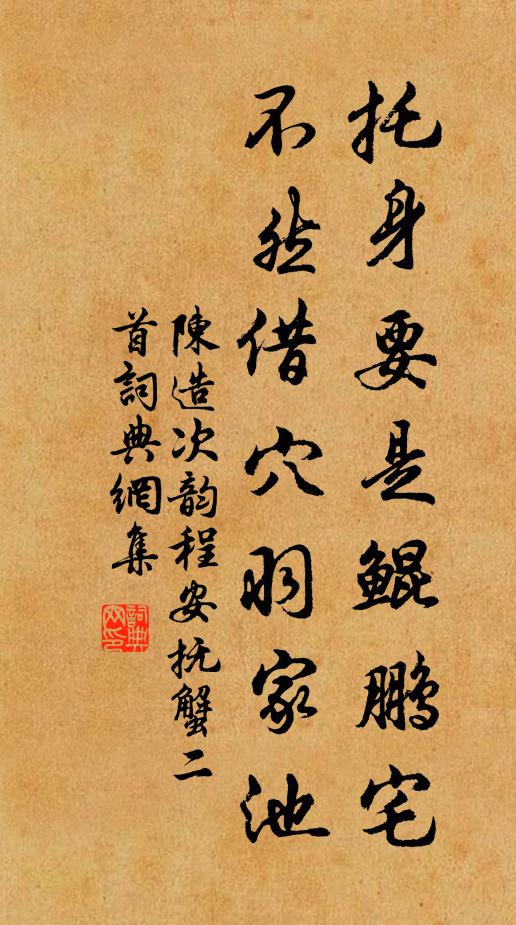 托身要是鲲鹏宅
不然借穴羽家池
陳造次韵程安抚蟹二
首詞典網集
詞典网印